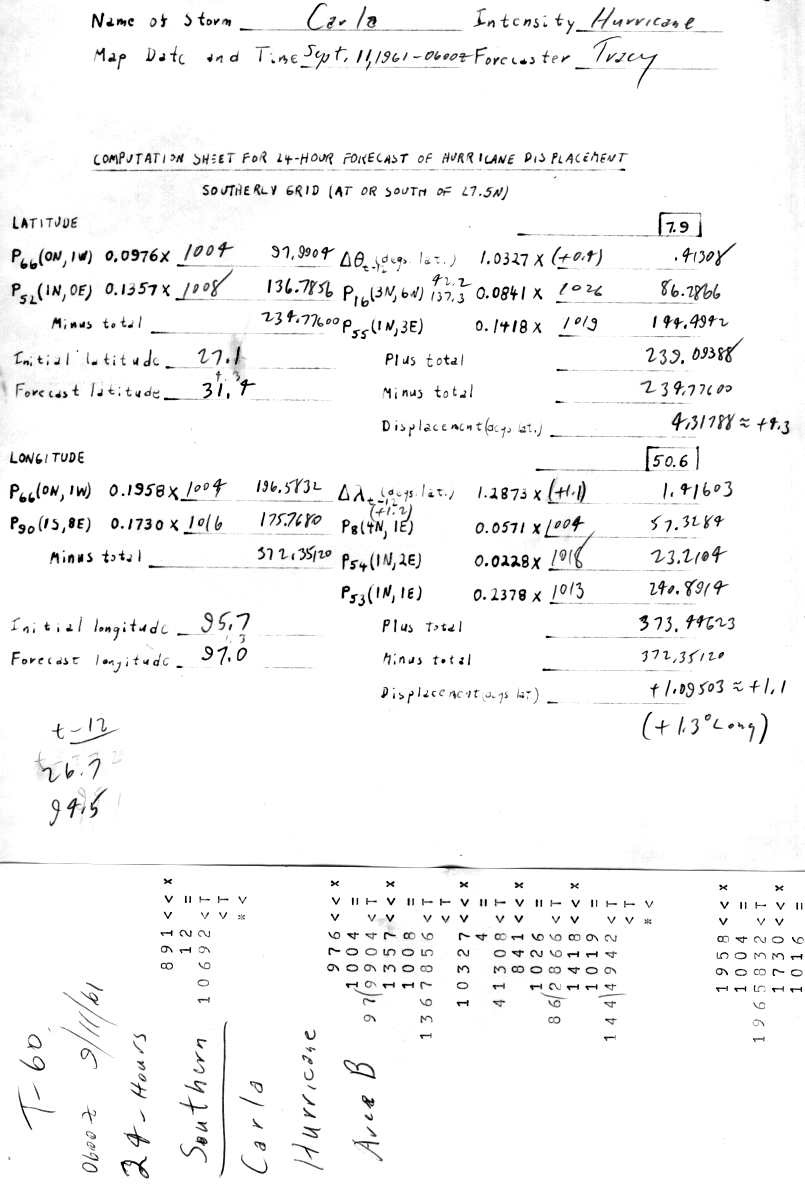 Name of Storm Carla Intensity Hurricane
Map Date and Time Sept. 11, 1961 - 0600z Forecaster Tracy
COMPUTATION SHEET FOR 24-HOUR FORECAST OF HURRICANE DISPLACEMENT
SOUTHERLY GRID (AT OR SOUTH OF 27.5N)
LATITUDE 7.9
P66(0N, 1W) 0.0976 x 1004 97.9904 Δθt-12 (degs. lat.) 1.0327 x (+0.4) .41308
P52(1N, 0E) 0.1357 x 1008 136.7856 P16(3N, 6W) 42.2 137.3 0.0841 x 1026 86.2866
Minus total 234.77600 P55(1N, 3E) 0.1418 x 1019 144.4942
Initial latitude 27.1 Plus total 239.09388
4.3
Forecast latitude 31.4 Minus total 234.77600
Displacement (degs lat.) 4.31788 ≈ +4.3
LONGITUDE 50.6
P66(0N, 1W) 0.1958 x 1004 196.5832 Δλt-12 (degs. lat.) 1.2873 x (+1.1) 1.41603
(+1.2)
P90(1S, 8E) 0.1730 x 1016 175.7680 P8(4N, 1E) 0.0571 x 1004 57.3284
Minus total 372.35120 P54(1N, 2E) 0.0228 x 1018 23.2104
P53(1N, 1E) 0.2378 x 1013 240.8914
Initial longitude 95.7 Plus total 373.44623
1.3
Forecast longitude 97.0 Minus total 372.35120
Displacement (degs lat) +1.09503 ≈ +1.1
(+1.3° Long)
t-12
26.7
94.5
T-60
0600z 9/11/61
24-Hours
Southern
Carla
Hurricane
Area B
891 < < x
12 =
10692 < T
< T
* <
976 < < x
1004 =
97/9904 < T
1357 < < x
1008 =
1367856 < T
< T
10327 < < x
4 =
41308 < T
841 < < x
1026 =
86/2866 < T
1418 < < x
1019 =
144/4942 < T
< T
* <
1958 < < x
1004 =
1965832 < T
1730 < < x
1016 =